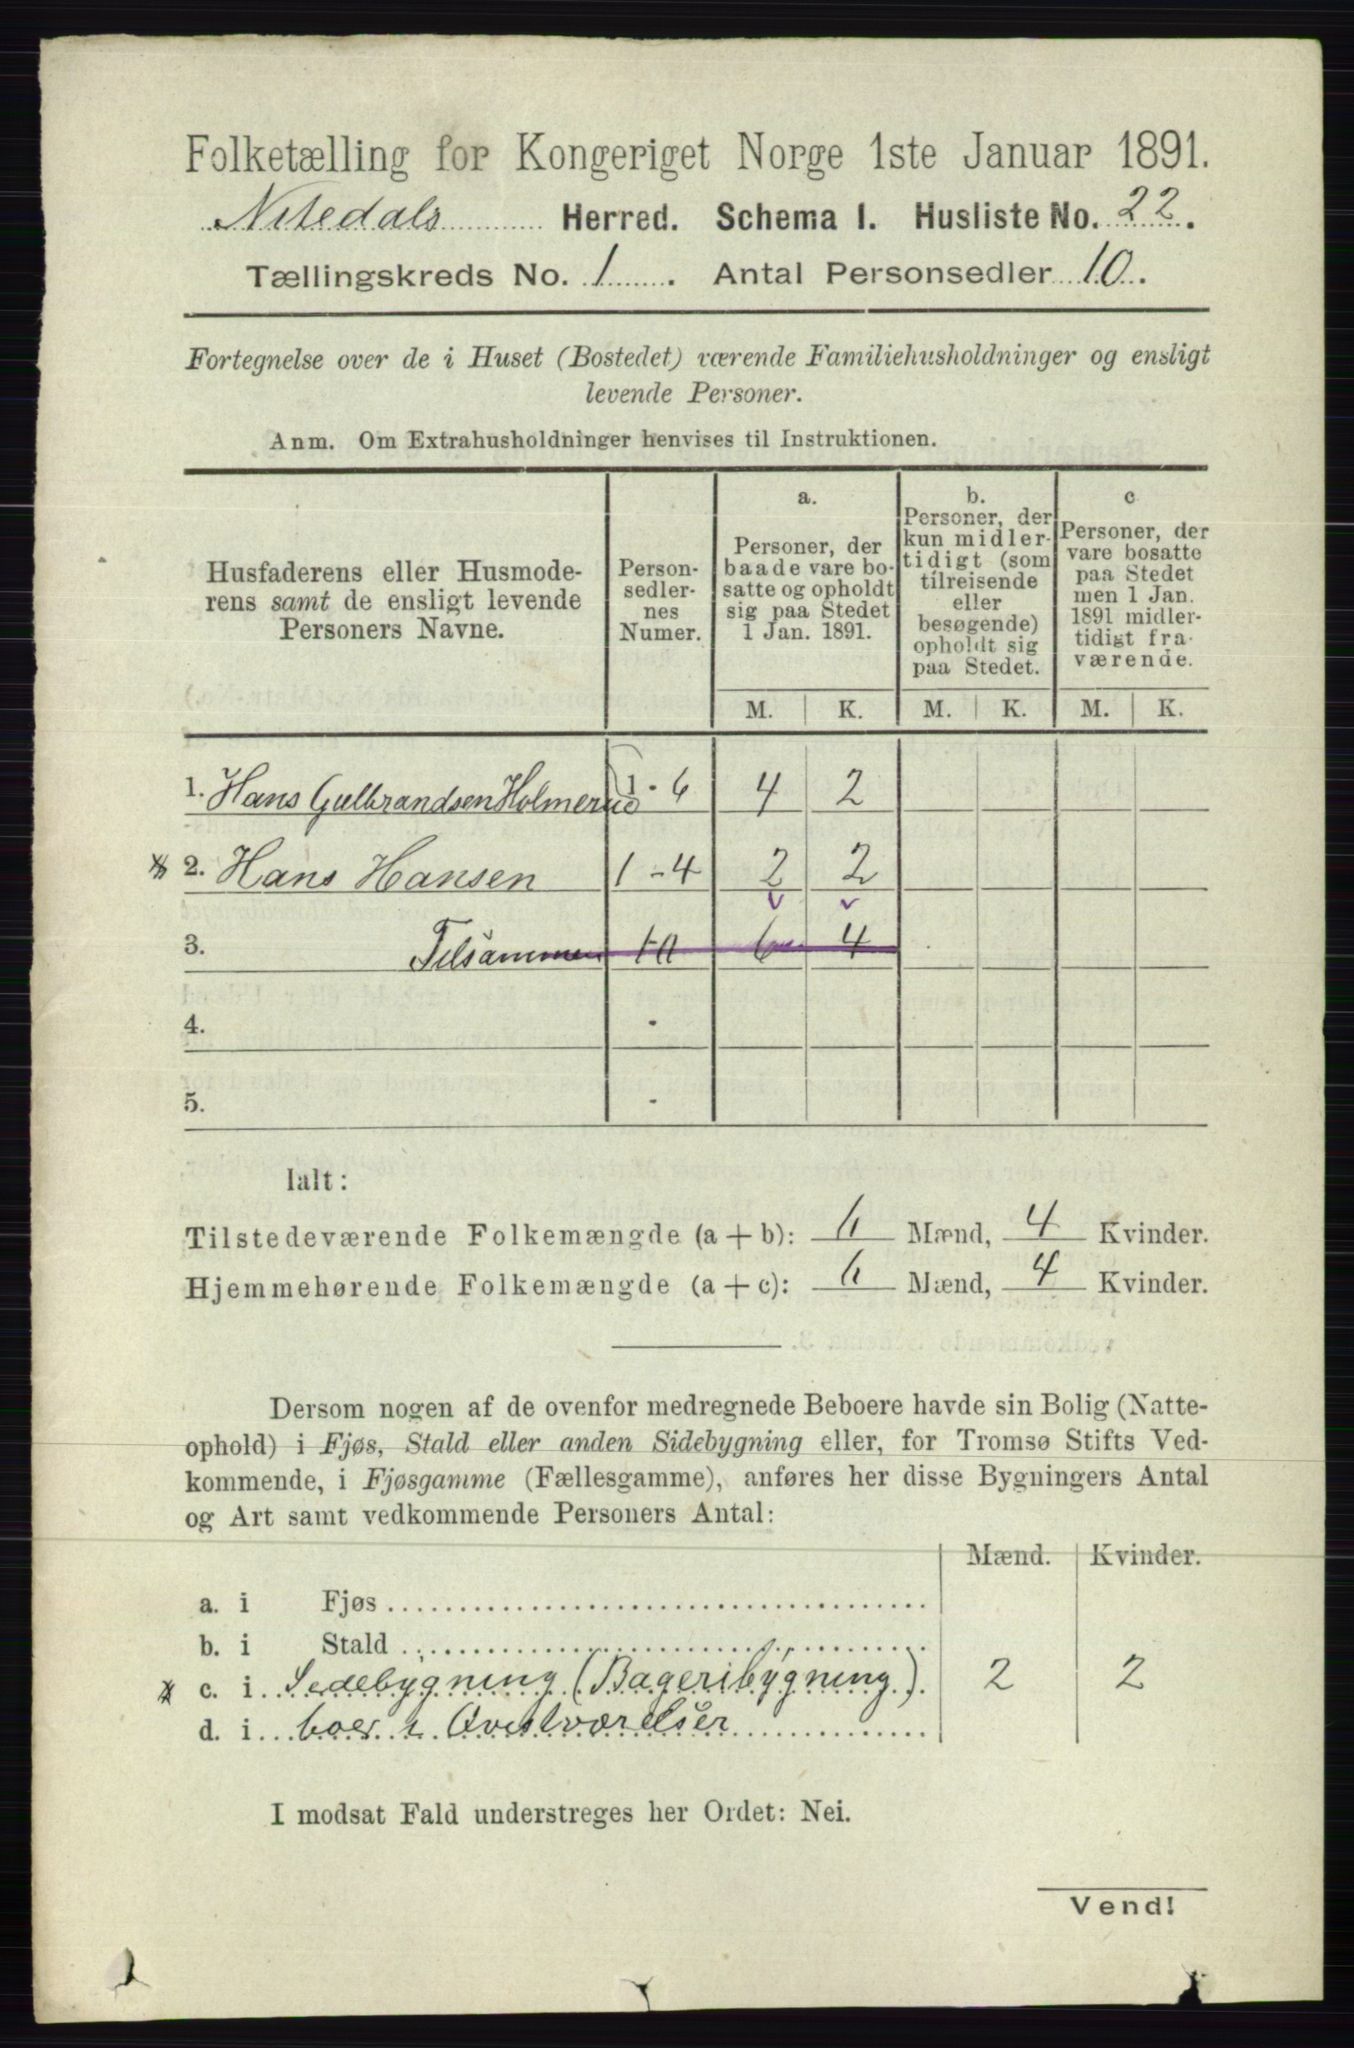 Folketælling for Kongeriget Norge 1ste Januar 1891.
Nitedals Herred. Schema I. Husliste No. 22.
Tællingskreds No. 1. Antal Personsedler 10.
Fortegnelse over de i Huset (Bostedet) værende Familiehusholdninger og ensligt
levende Personer.
Anm. Om Extrahusholdninger henvises til Instruktionen.
Husfaderens eller Husmode-
rens samt de ensligt levende
Personers Navne.
Person-
sedler-
nes
Numer.
a.
Personer, der
baade vare bo-
satte og opholdt
sig paa Stedet
1 Jan. 1891.
b.
Personer, der
kun midler-
tidigt (som
tilreisende
eller
besøgende)
opholdt sig
paa Stedet.
c
Personer, der
vare bosatte
paa Stedet
men 1 Jan.
1891 midler-
tidigt fra-
værende.
M. K. M. K. M. K.
1. Hans Gulbrandsen Holmerud 1 - 6 4 2
2. Hans Hansen 1 - 4 2 2
3. Tilsammen 10 6 4
4. -
5. -
Ialt:
Tilstedeværende Folkemængde (a + b): 6 Mænd, 4 Kvinder.
Hjemmehørende Folkemængde (a + c): 6 Mænd, 4 Kvinder.
Dersom nogen af de ovenfor medregnede Beboere havde sin Bolig (Natte-
ophold) i Fjøs, Stald eller anden Sidebygning eller, for Tromsø Stifts Ved-
kommende, i Fjøsgamme (Fællesgamme), anføres her disse Bygningers Antal
og Art samt vedkommende Personers Antal:
Mænd. Kvinder.
a. i Fjøs
b. i Stald
c. i Sidebygning (Bageribygning) 2 2
d. i boer i Qvistværelser
I modsat Fald understreges her Ordet: Nei.
Vend!